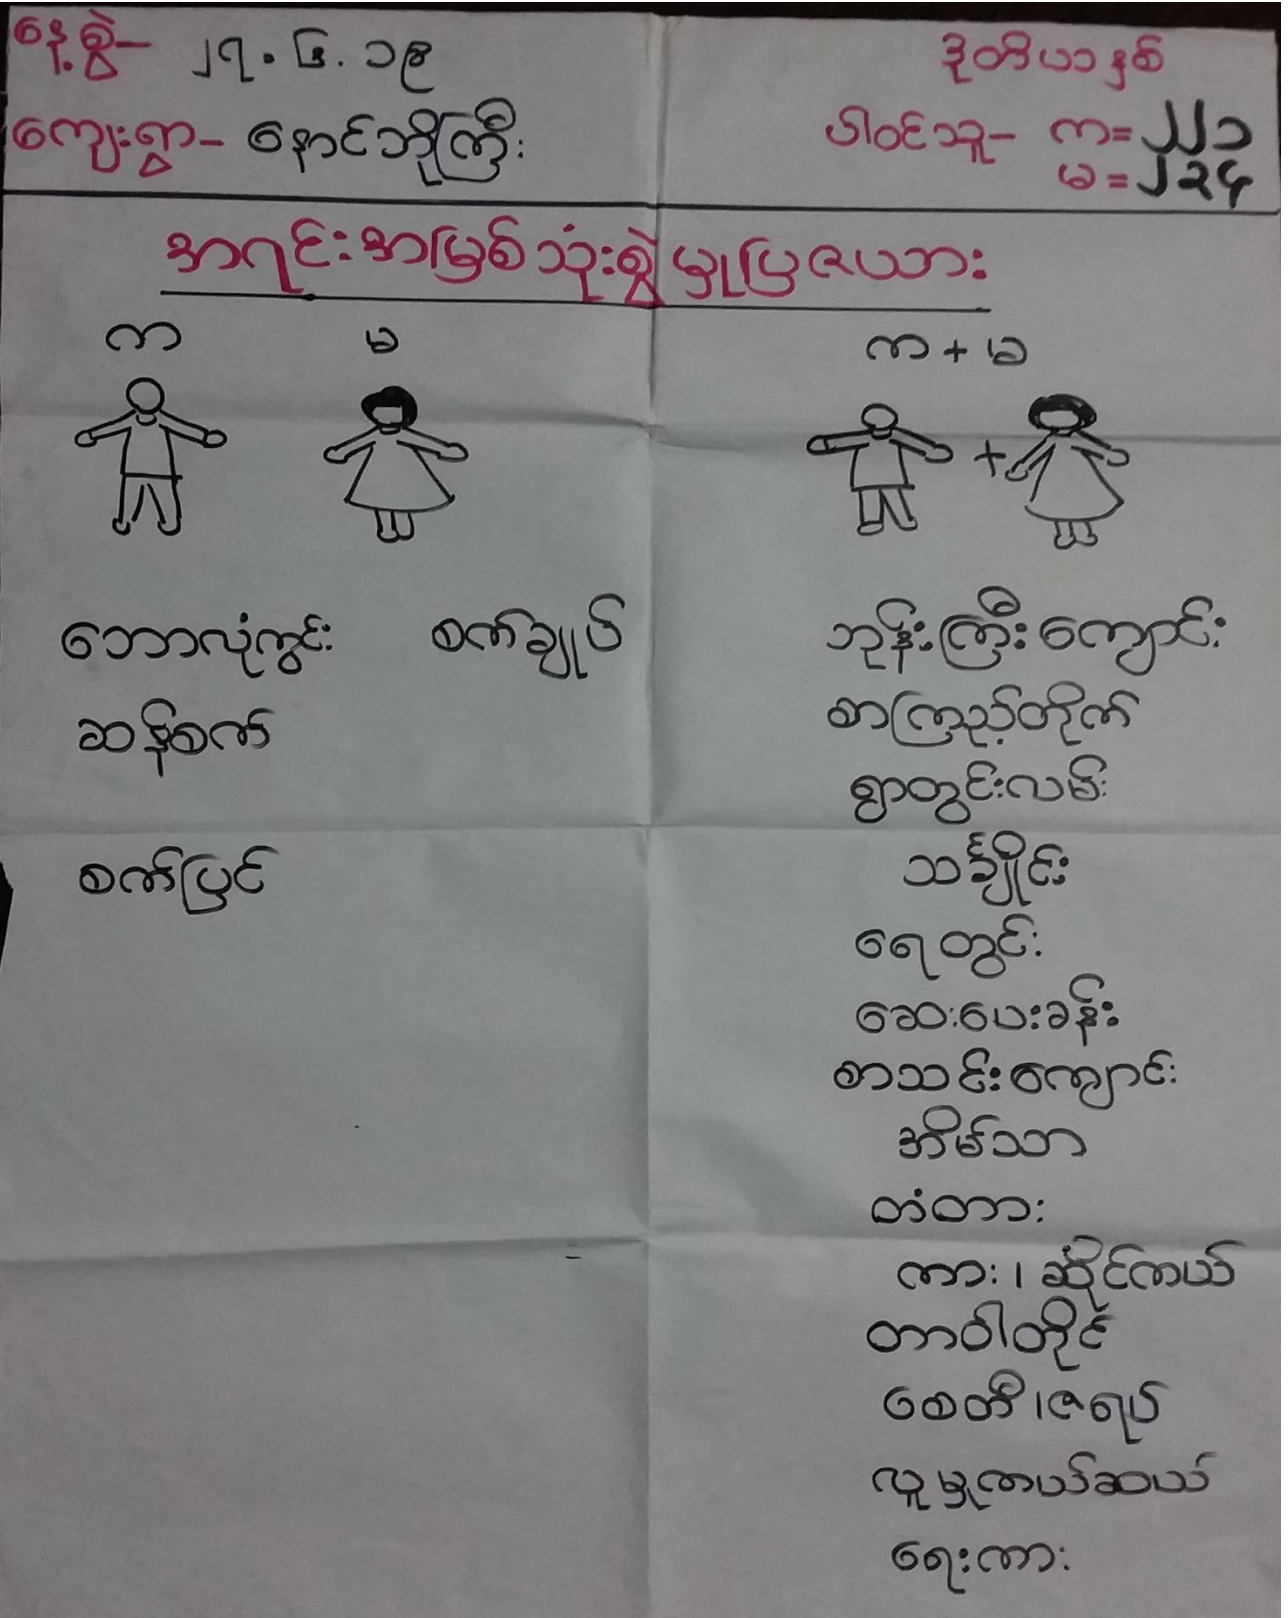 နေ့စွဲ- ၂၇.၆.၁၉
ဒုတိယနှစ်
ကျေးရွာ- နောင်ဘိုကြီး
ပါဝင်သူ- ကျ=၂၂၁
မ=၂၃၄
အရင်းအမြစ်သုံးစွဲမှုပြဇယား
ကျ
မ
ကျ + မ
+
ဘောလုံးကွင်း
စက်ချုပ်
ဘုန်းကြီးကျောင်း
ဆန်စက်
စာကြည့်တိုက်
ရွာတွင်းလမ်း
စက်ပြင်
သင်္ချိုင်း
ရေတွင်း
ဆေးပေးခန်း
စာသင်ကျောင်း
အိမ်သာ
တံတား
ကား၊ ဆိုင်ကယ်
တာဝါတိုင်
စေတီ၊ဇရပ်
လူမှုကယ်ဆယ်
ရေးကား